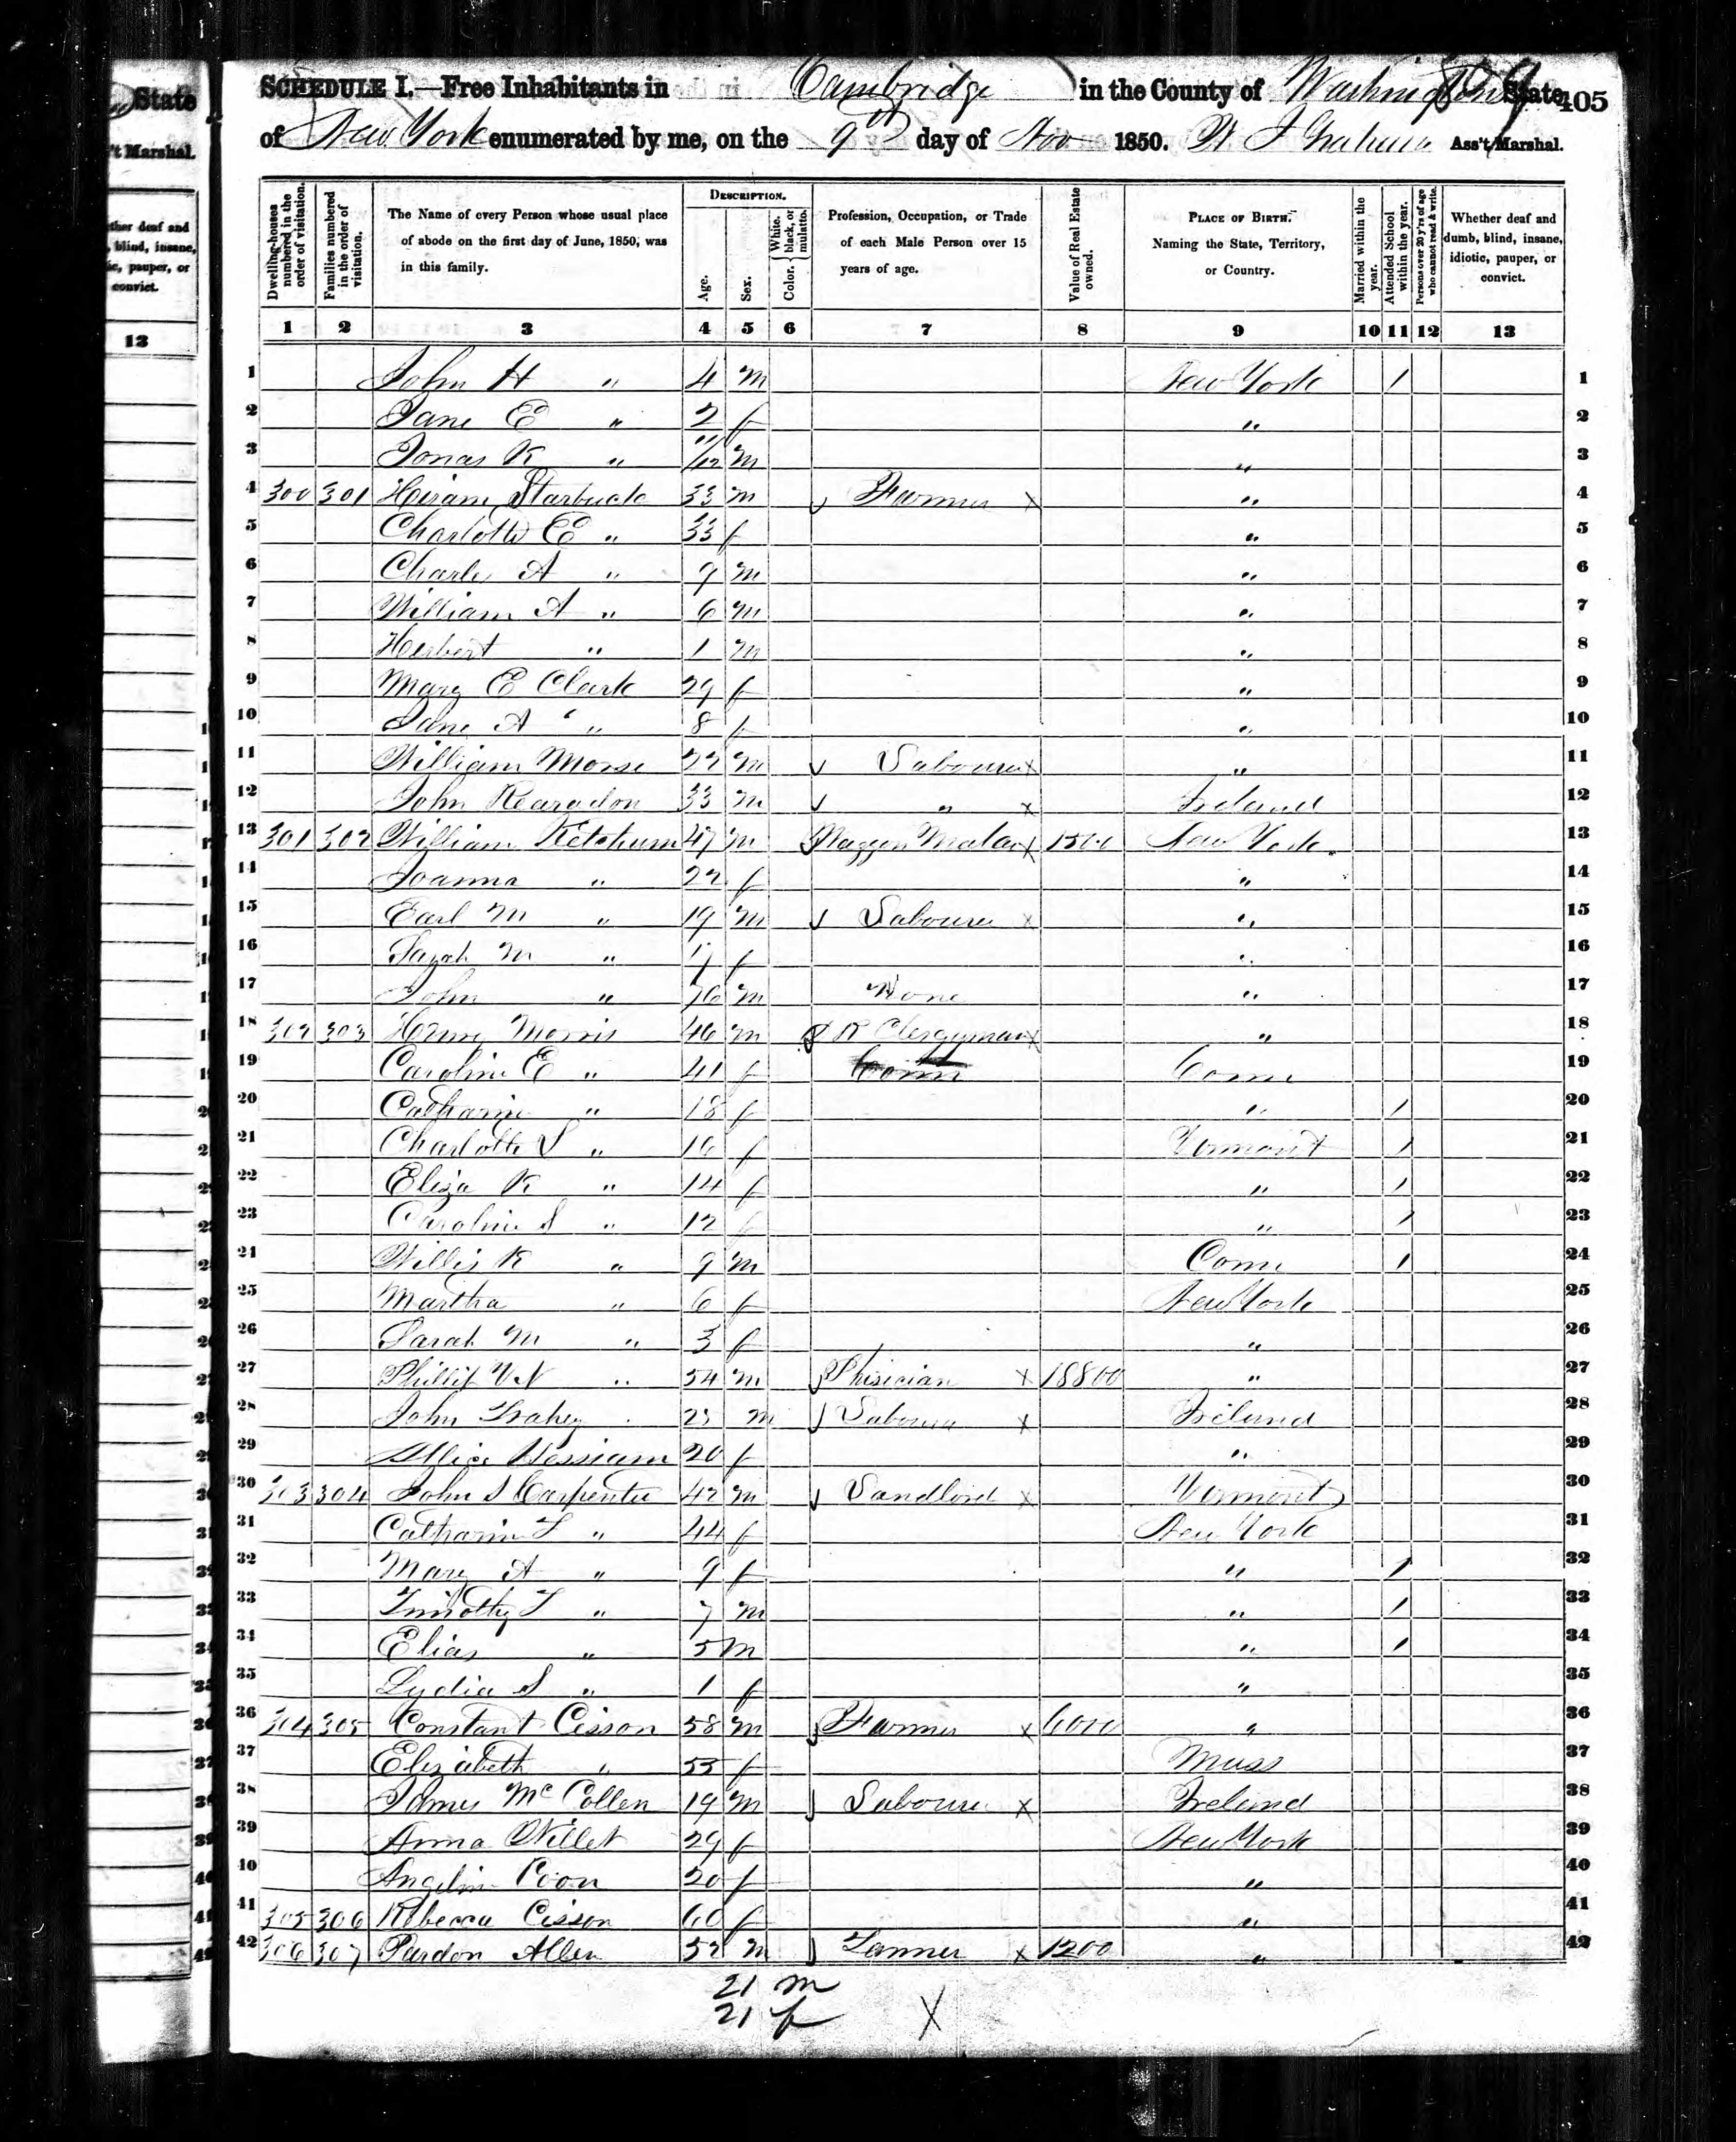 State
't Marshal.
ther deaf and
, blind, insane,
ic, pauper, or
convict.
13
SCHEDULE I.—Free Inhabitants in Cambridge in the County of Washington State 405
of New York enumerated by me, on the 9th day of Nov 1850. Ass't Marshal.
Dwelling-houses numbered in the order of visitation.
Families numbered in the order of visitation.
The Name of every Person whose usual place of abode on the first day of June, 1850, was in this family.
DESCRIPTION.
Age.
Sex.
Color. White, black, or mulatto.
Profession, Occupation, or Trade of each Male Person over 15 years of age.
Value of Real Estate owned.
PLACE OF BIRTH. Naming the State, Territory, or Country.
Married within the year.
Attended School within the year.
Persons over 20 y'rs of age who cannot read & write.
Whether deaf and dumb, blind, insane, idiotic, pauper, or convict.
1 2 3 4 5 6 7 8 9 10 11 12 13
1 John H " 4 m New York / 1
2 Jane E " 2 f " 2
3 Jonas K " 11/12 m " 3
4 300 301 Hiram Starbuck 33 m Farmer x " 4
5 Charlotte E " 33 f " 5
6 Charles A " 9 m " 6
7 William A " 6 m " 7
8 Herbert " 1 m " 8
9 Mary E Clark 29 f " 9
10 Jane A " 8 f " 10
11 William Morse 22 m Labourer x " 11
12 John Rearadon 33 m " x Ireland 12
13 301 302 William Ketchum 47 m x 1500 New York 13
14 Joanna " 22 f " 14
15 Earl M " 19 m Labourer x " 15
16 Sarah M " f " 16
17 John " 76 m None " 17
18 302 303 Henry Morris 46 m Clergyman x " 18
19 Caroline E " 41 f Conn Conn 19
20 Catharine " 18 f " / 20
21 Charlotte S " 16 f Vermont / 21
22 Eliza K " 14 f " / 22
23 Caroline S " 12 f " / 23
24 Willis K " 9 m Conn / 24
25 Martha " 6 f New York 25
26 Sarah M " 3 f " 26
27 Phillip V N " 54 m Phisician x 18800 " 27
28 John 25 m Labourer x Ireland 28
29 Allice Hessiam 20 f " 29
30 303 304 John S Carpenter 42 m Landlord x Vermont 30
31 Catharine T " 44 f New York 31
32 Mary A " 9 f " / 32
33 Timothy T " 7 m " / 33
34 Elias " 5 m " / 34
35 Lydia S " 1 f " 35
36 304 305 Constant Cisson 58 m Farmer x 6000 " 36
37 Elizabeth " 55 f Mass 37
38 James McCollen 19 m Labourer x Ireland 38
39 Anna Willet 29 f New York 39
40 Angeline Coon 20 f " 40
41 305 306 Rebecca Cisson 60 f " 41
42 306 307 Pardon Allen 52 m Tanner x 1200 " 42
21 m
21 f X